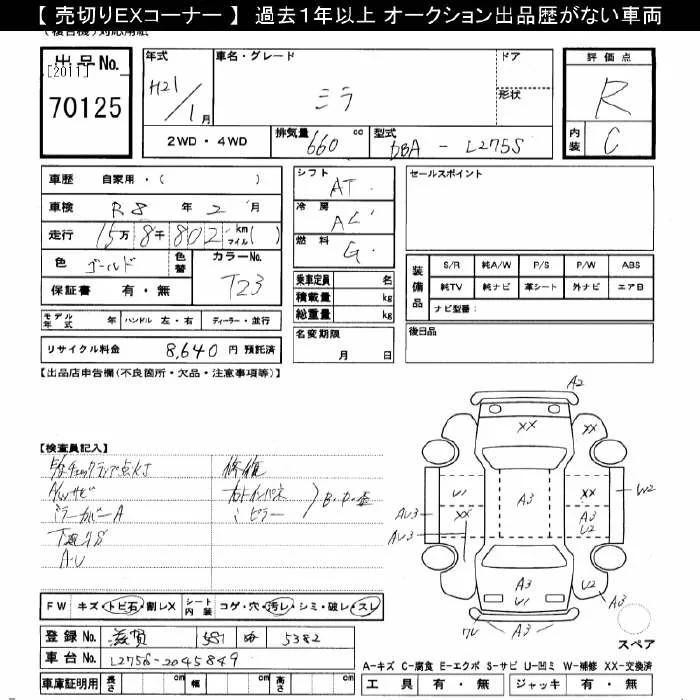 【 売切りEXコーナー 】 過去１年以上 オークション出品歴がない車両
出品No.
[2011]
70125
年式
H21/1月
車名・グレード
ミラ
ドア
形状
2WD・4WD
排気量 660 cc
型式 DBA - L275S
評価点
R
内装 C
車歴 自家用・( )
車検 R8 年 2 月
走行 15万 8千 802 km マイル( )
色 ゴールド 色替 カラーNo. T23
保証書 有・無
モデル年式 年 ハンドル 左・右 ディーラー・並行
リサイクル料金 8,640 円 預託済
シフト AT
冷房 AC
燃料 G
乗車定員 名
積載量 kg
総重量 kg
名変期限 月 日
セールスポイント
装備品
S/R 純A/W P/S P/W ABS
純TV 純ナビ 革シート 外ナビ エアB
ナビ型番:
後日品
【出品店申告欄(不良箇所・欠品・注意事項等)】
【検査員記入】
A/Wサビ
ミラーカバーA
A・U
修復
ピラー
A2
XX
U1
XX
W2
AU3
XX
A3
A3
U2
AU3
A3
U1
U2
A3
A3
スペア
FW キズ・トビ石・割レX シート内装 コゲ・穴・汚レ・シミ・破レ・スレ
登録No. 滋賀 581 5382
車台No. L275S-2045849
車庫証明用 長さ cm 幅 cm 高さ cm
A-キズ C-腐食 E-エクボ S-サビ U-凹ミ W-補修 XX-交換済
工具 有・無 ジャッキ 有・無